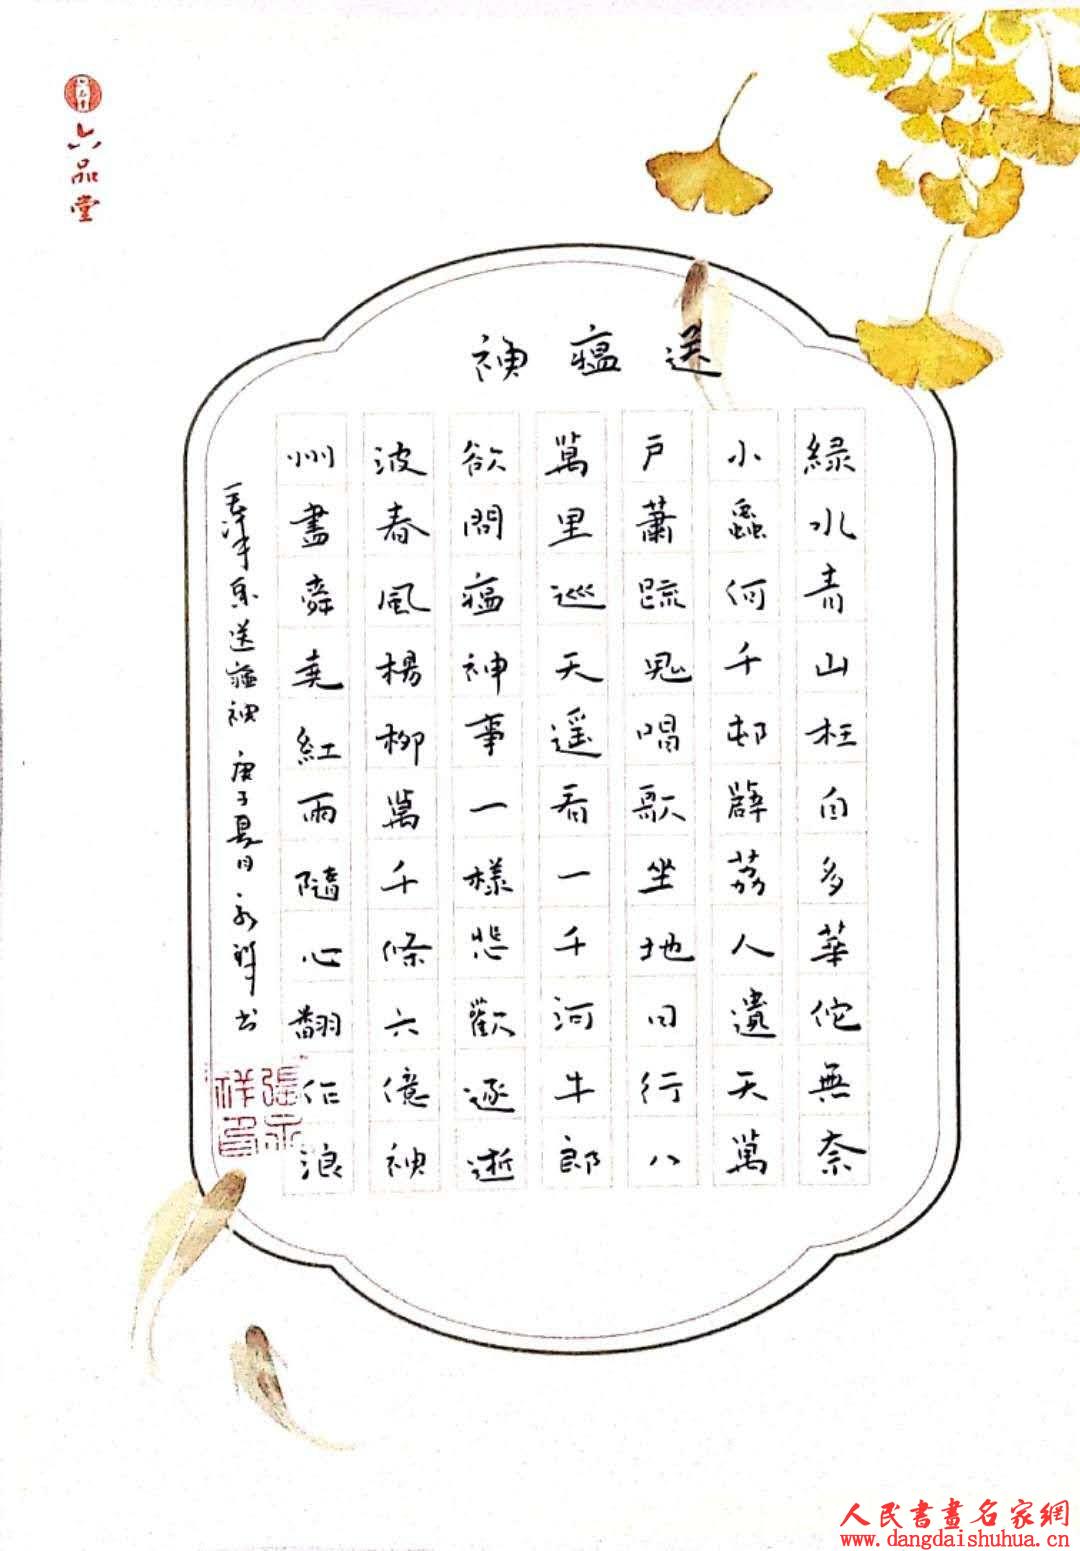 六品堂
送瘟神
綠水青山枉自多華佗無奈
小蟲何千邨薜荔人遺天萬
戶蕭疏鬼唱歌坐地日行八
萬里巡天遥看一千河牛郎
欲問瘟神事一樣悲歡逐逝
波春風楊柳萬千條六億神
州盡舜堯紅雨隨心翻作浪
毛澤東送瘟神 庚子夏月永祥书
張永祥印
人民書畫名家網
www.dangdaishuhua.cn